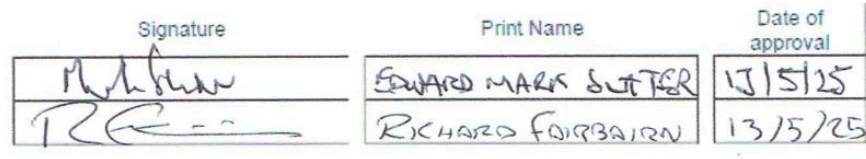 Signature Print Name Date of approval
EDWARD MARK SUTTER 13/5/25
RICHARD FAIRBAIRN 13/5/25